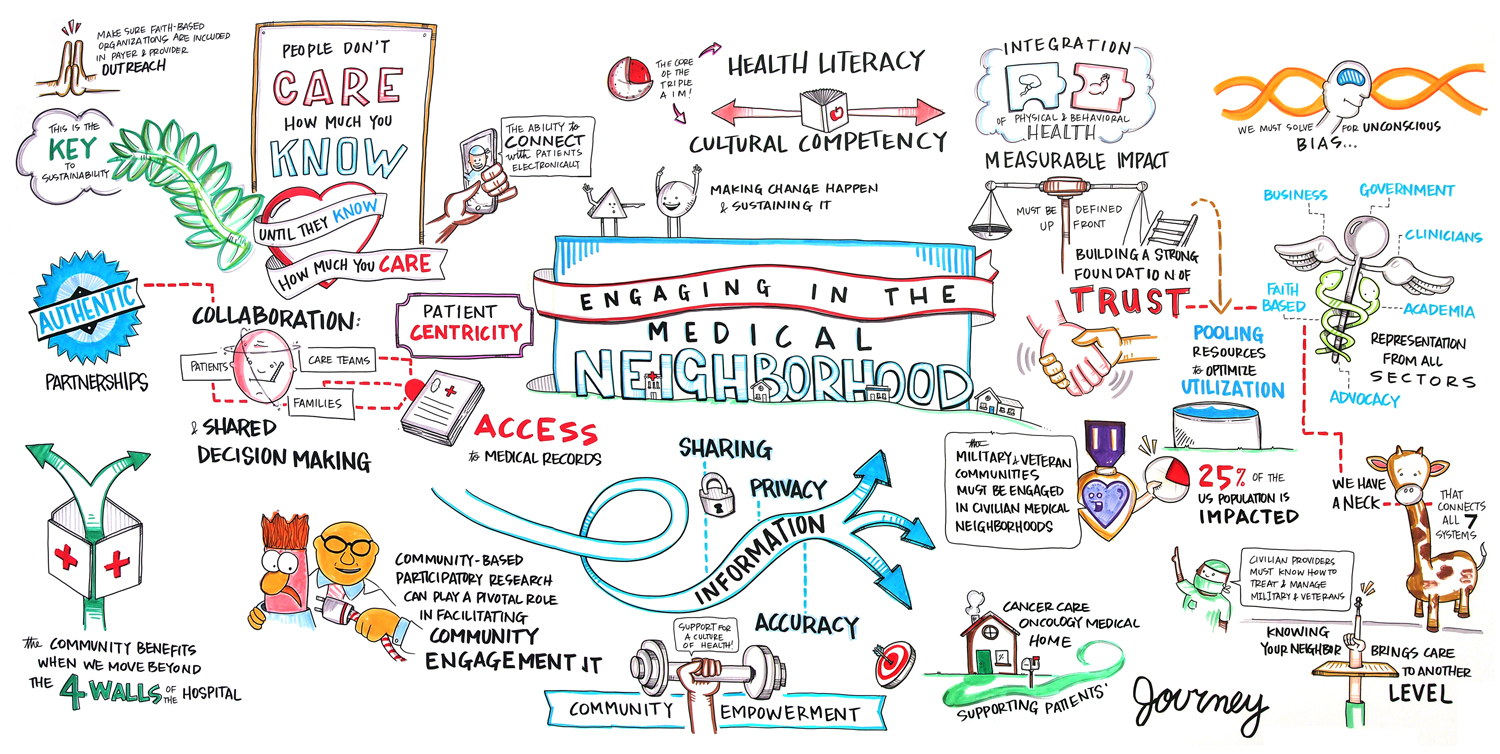 MAKE SURE FAITH-BASED
ORGANIZATIONS ARE INCLUDED
IN PAYER & PROVIDER
OUTREACH
THIS IS THE
KEY
TO
SUSTAINABILITY
PEOPLE DON'T
CARE
HOW MUCH YOU
KNOW
UNTIL THEY KNOW
HOW MUCH YOU CARE
THE ABILITY to
CONNECT
with PATIENTS
ELECTRONICALLY
THE CORE
OF THE
TRIPLE
AIM!
HEALTH LITERACY
CULTURAL COMPETENCY
MAKING CHANGE HAPPEN
& SUSTAINING IT
ENGAGING IN THE
MEDICAL
NEIGHBORHOOD
INTEGRATION
OF PHYSICAL & BEHAVIORAL
HEALTH
MEASURABLE IMPACT
MUST BE DEFINED
UP FRONT
WE MUST SOLVE FOR UNCONSCIOUS
BIAS...
BUILDING A STRONG
FOUNDATION OF
TRUST
POOLING
RESOURCES
to OPTIMIZE
UTILIZATION
BUSINESS
GOVERNMENT
CLINICIANS
FAITH
BASED
ACADEMIA
ADVOCACY
REPRESENTATION
FROM ALL
SECTORS
AUTHENTIC
PARTNERSHIPS
COLLABORATION:
PATIENTS
CARE TEAMS
FAMILIES
& SHARED
DECISION MAKING
PATIENT
CENTRICITY
ACCESS
to MEDICAL RECORDS
the COMMUNITY BENEFITS
WHEN WE MOVE BEYOND
THE 4 WALLS OF THE HOSPITAL
COMMUNITY-BASED
PARTICIPATORY RESEARCH
CAN PLAY A PIVOTAL ROLE
IN FACILITATING
COMMUNITY
ENGAGEMENT IT
SHARING
PRIVACY
INFORMATION
ACCURACY
SUPPORT FOR
A CULTURE
OF HEALTH!
COMMUNITY EMPOWERMENT
the
MILITARY & VETERAN
COMMUNITIES
MUST BE ENGAGED
IN CIVILIAN MEDICAL
NEIGHBORHOODS
25% OF THE
US POPULATION IS
IMPACTED
WE HAVE
A NECK
THAT
CONNECTS
ALL 7
SYSTEMS
CIVILIAN PROVIDERS
MUST KNOW HOW TO
TREAT & MANAGE
MILITARY & VETERANS
CANCER CARE
ONCOLOGY MEDICAL
HOME
SUPPORTING PATIENTS'
Journey
KNOWING
YOUR NEIGHBOR BRINGS CARE
TO ANOTHER
LEVEL